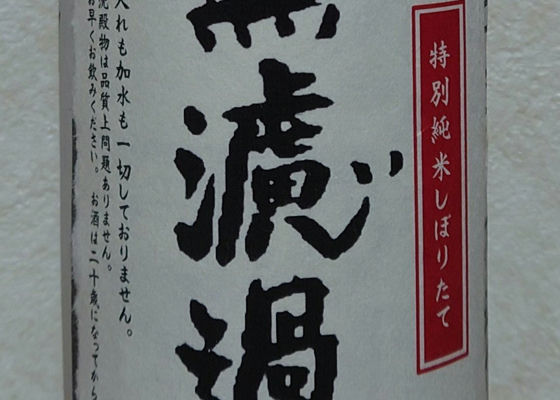 特別純米しぼりたて
無濾過
入れも加水も一切しておりません。
沈殿物は品質上問題ありません。
お早くお飲みください。 お酒は二十歳になってから